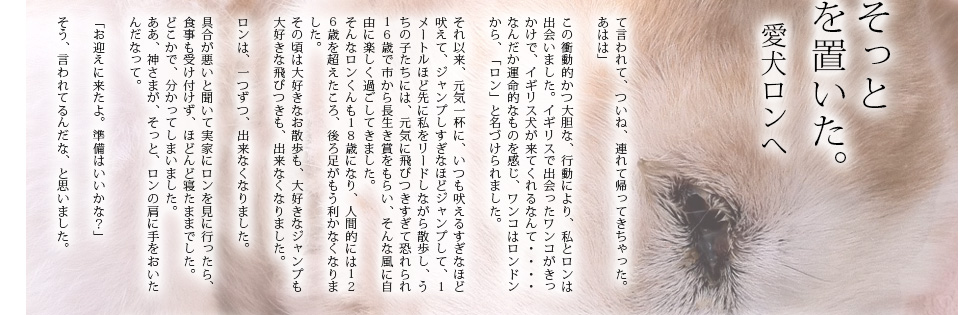 そっと
を置いた。
愛犬ロンへ
て言われて、ついね、連れて帰ってきちゃった。
あはは」
この衝動的かつ大胆な、行動により、私とロンは
出会いました。イギリスで出会ったワンコがきっ
かけで、イギリス犬が来てくれるなんて・・・・
なんだか運命的なものを感じ、ワンコはロンドン
から、「ロン」と名づけられました。
それ以来、元気一杯に、いつも吠えるすぎなほど
吠えて、ジャンプしすぎなほどジャンプして、１
メートルほど先に私をリードしながら散歩し、う
ちの子たちには、元気に飛びつきすぎて恐れられ
１６歳で市から長生き賞をもらい、そんな風に自
由に楽しく過ごしてきました。
そんなロンくんも１８歳になり、人間的には１２
６歳を超えたころ、後ろ足がもう利かなくなりま
した。
その頃は大好きなお散歩も、大好きなジャンプも
大好きな飛びつきも、出来なくなりました。
ロンは、一つずつ、出来なくなりました。
具合が悪いと聞いて実家にロンを見に行ったら、
食事も受け付けず、ほどんど寝たままでした。
どこかで、分かってしまいました。
ああ、神さまが、そっと、ロンの肩に手をおいた
んだなって。
「お迎えに来たよ。準備はいいかな？」
そう、言われてるんだな、と思いました。